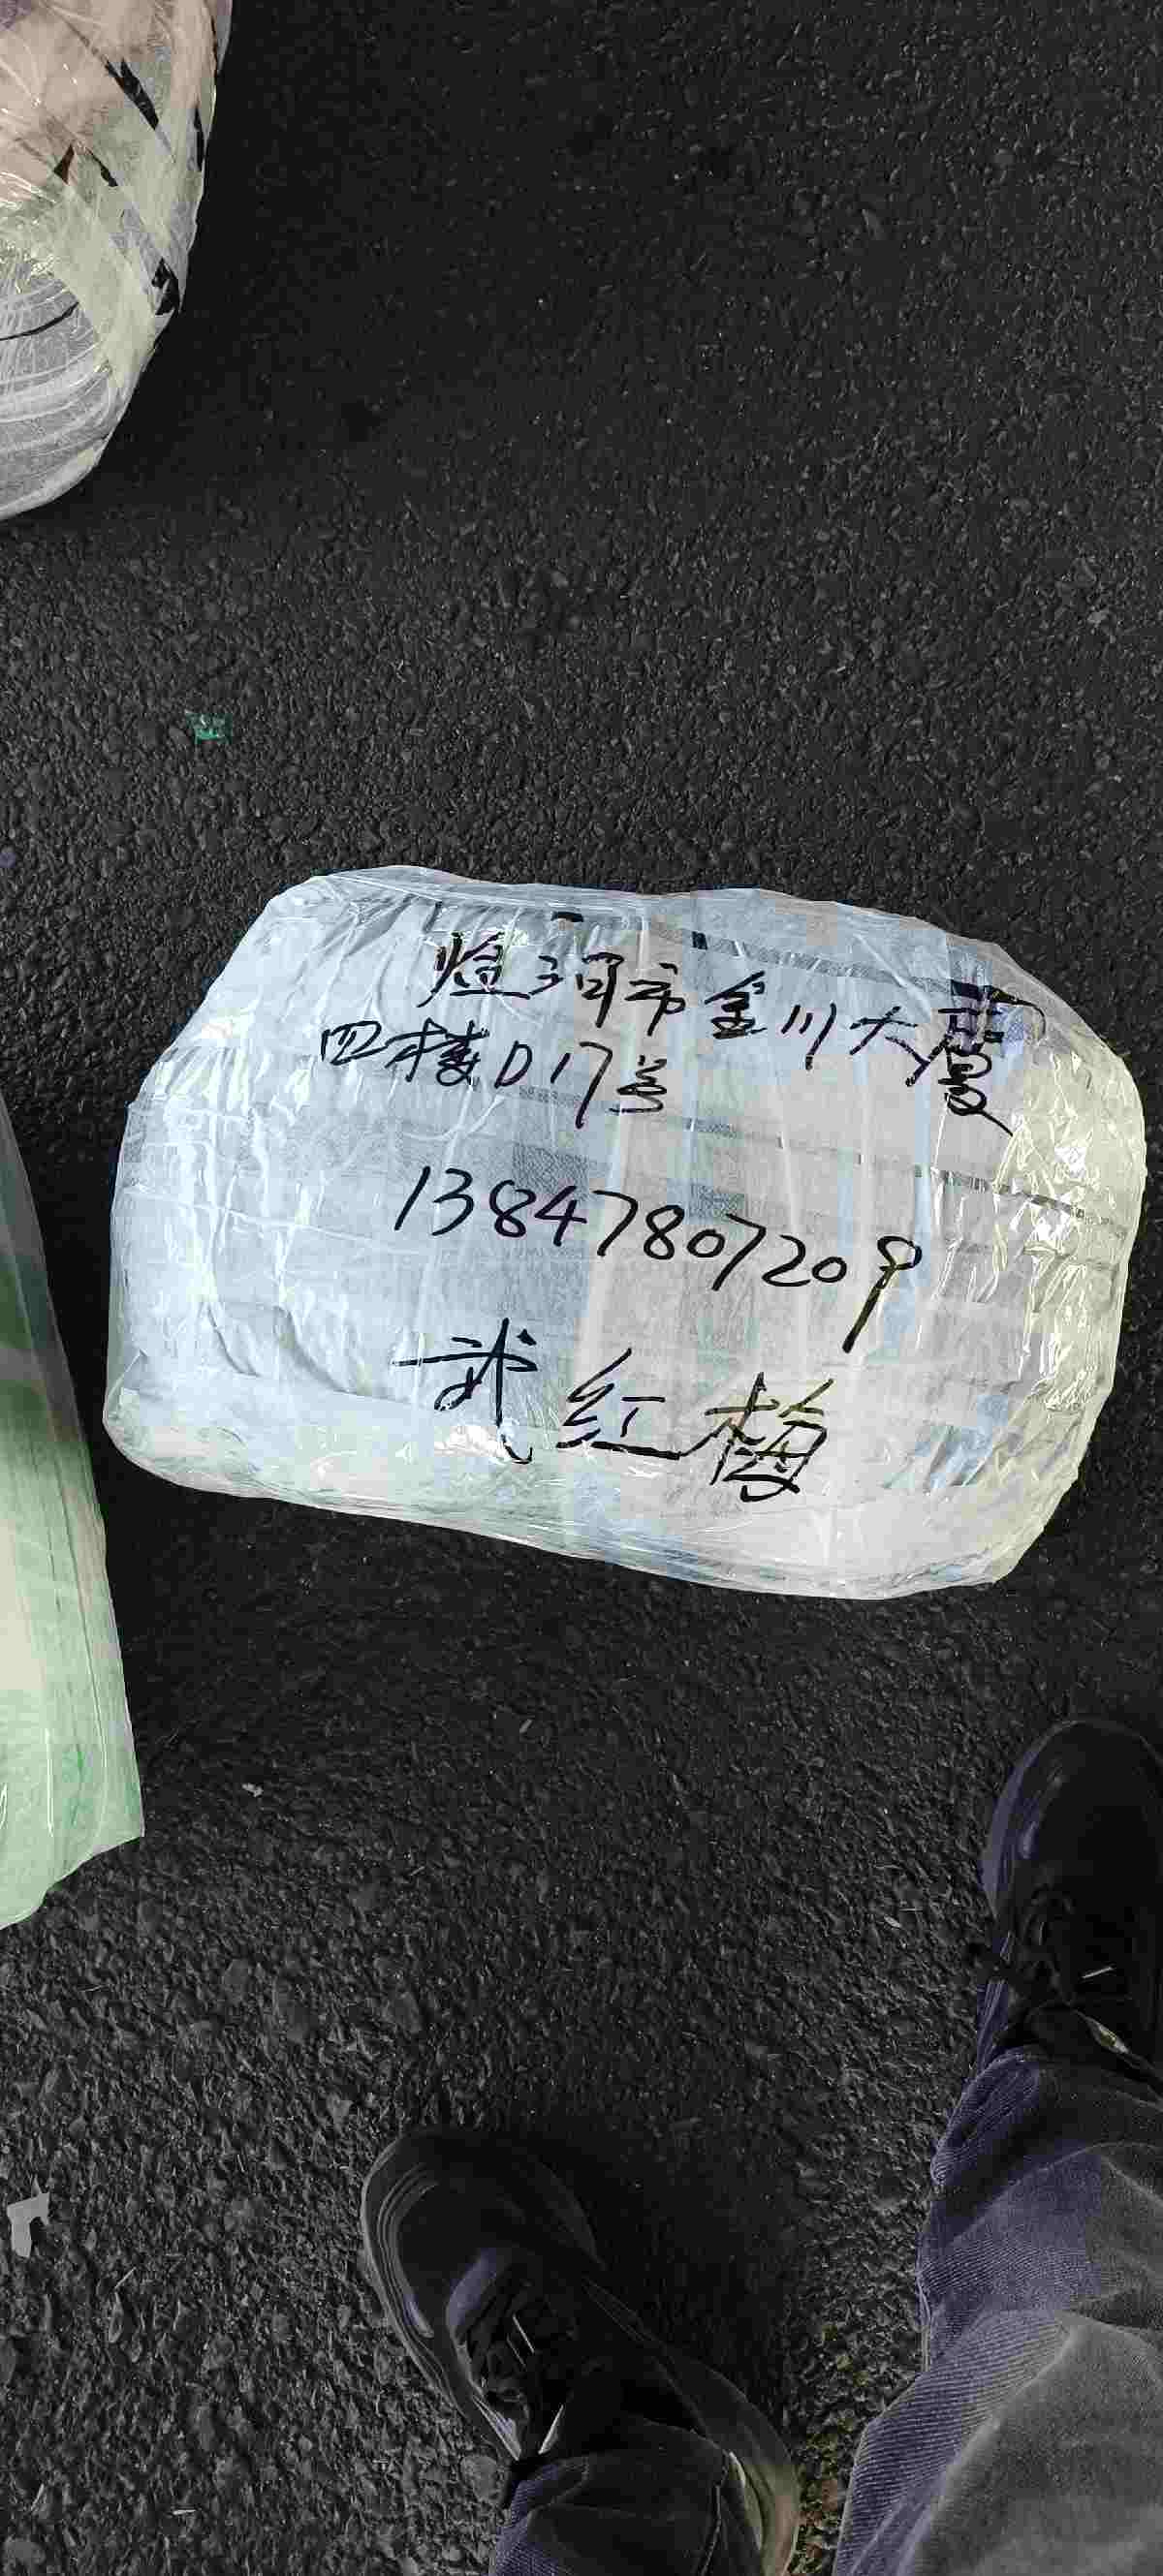 临河市金川大厦
四楼D17号
13847807209
武红梅